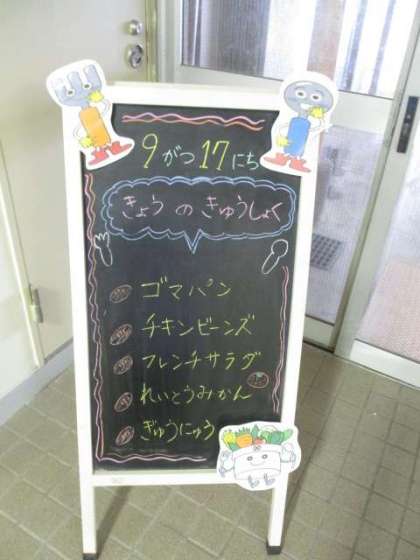 9がつ17にち
きょうのきゅうしょく
ゴマパン
チキンビーンズ
フレンチサラダ
れいとうみかん
ぎゅうにゅう